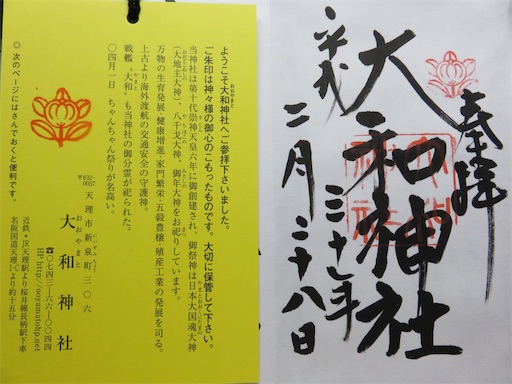 奉拝
大和神社
平成三十年
二月二十八日
ようこそ大和神社へご参拝下さいました。
ご朱印は神々様の御心のこもったものです。大切に保管して下さい。
当神社は第十代崇神天皇六年に御創建され、御祭神は日本大国魂大神
(大地主大神)、八千戈大神、御年大神をお祀りしています。
万物の生育発展・健康増進・家門繁栄・五穀豊穣・殖産工業の発展を司る。
上古より海外渡航の交通安全の守護神。
戦艦〝大和〟も当神社の御分霊が祀られた。
〇四月一日 ちゃんちゃん祭りが名高い。
〒632-0057 天理市新泉町三〇六
おおやまと
大和神社
☎〇七四三-六六-〇〇四四
HP http://ooyamatohp.net
近鉄・JR天理駅より桜井線長柄駅下車
名阪国道天理I・Cより約十五分
◎次のページにはさんでおくと便利です。